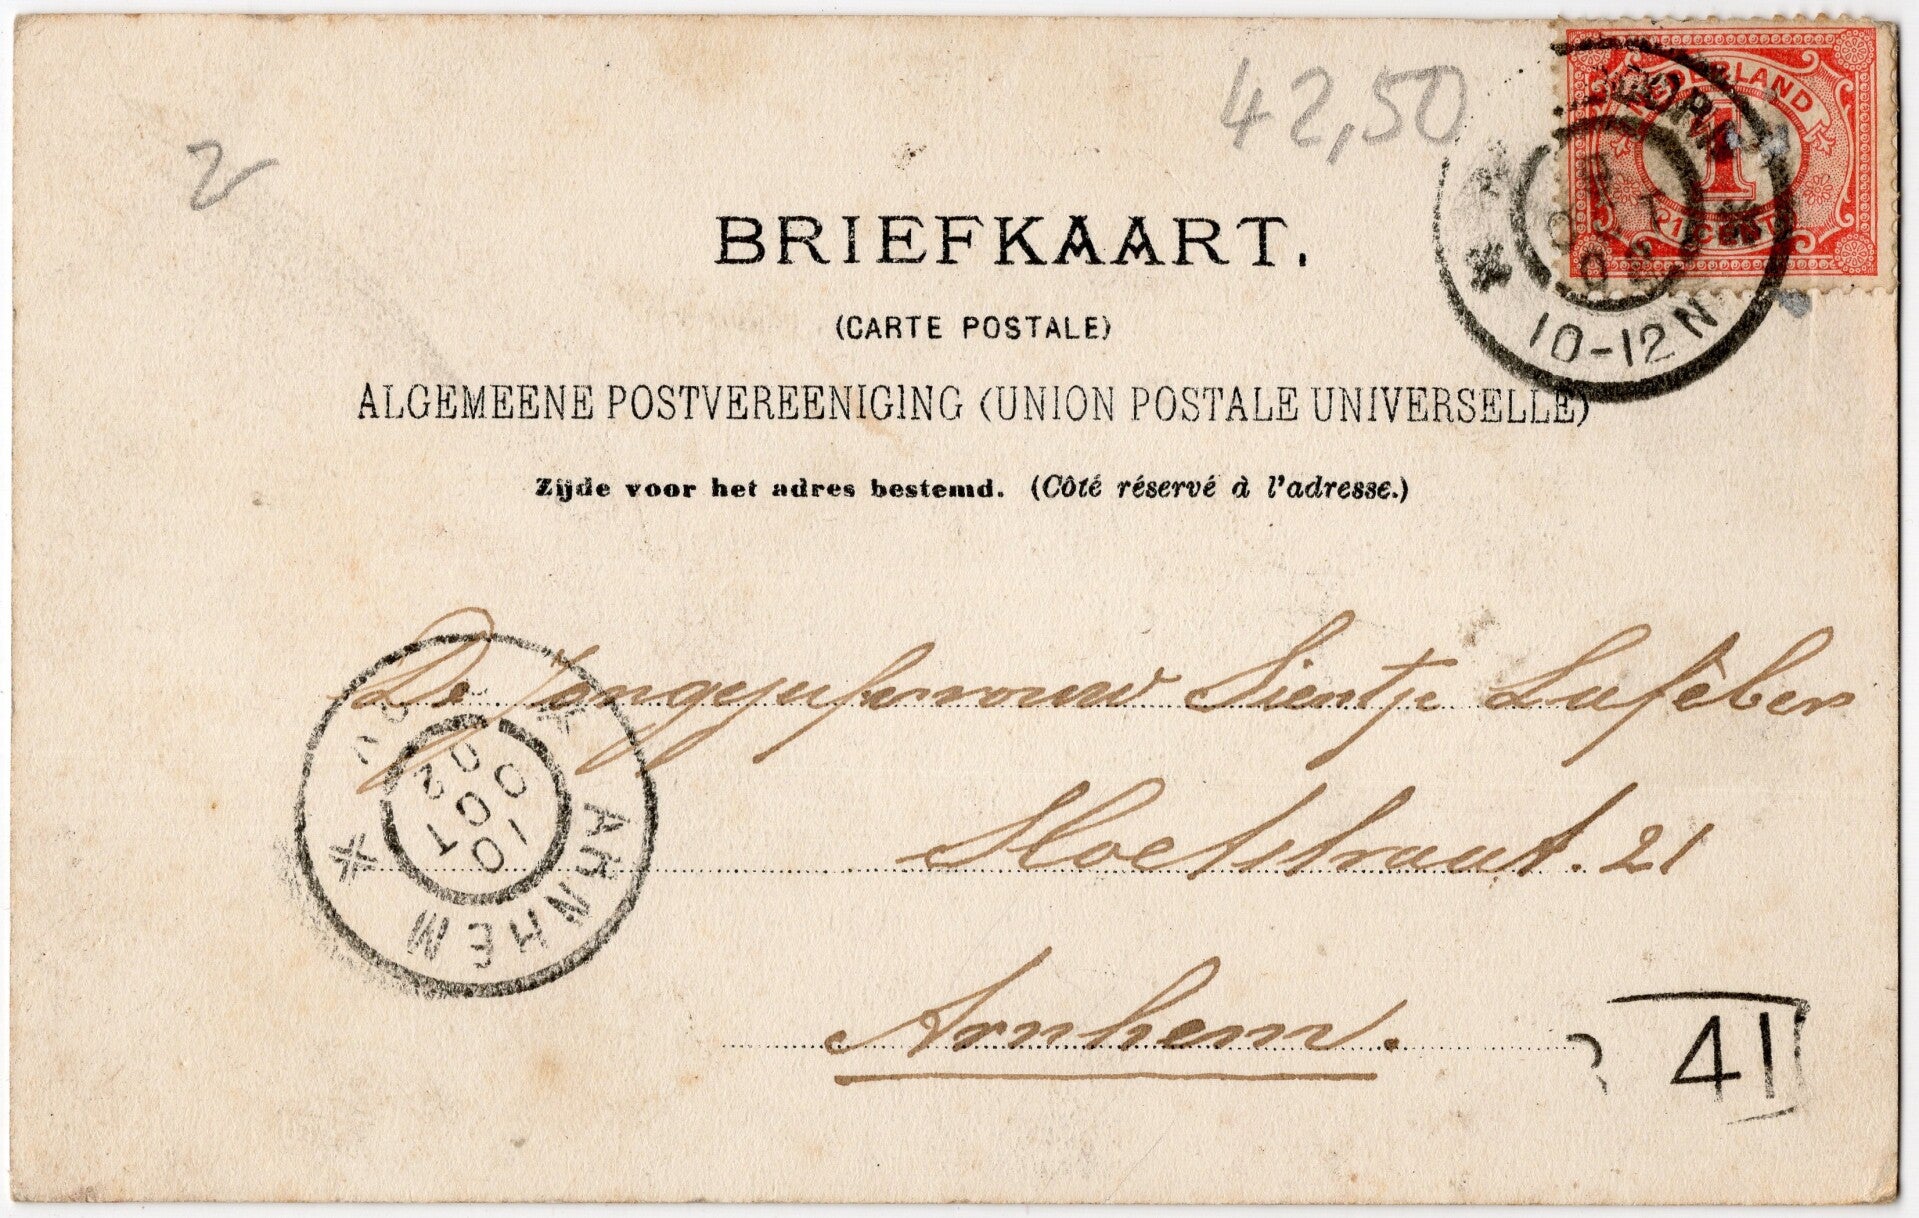 2
42,50
NEDERLAND
1
1 CENT
10-12N
BRIEFKAART.
(CARTE POSTALE)
ALGEMEENE POSTVEREENIGING (UNION POSTALE UNIVERSELLE)
Zijde voor het adres bestemd. (Côté réservé à l'adresse.)
De Jongejufvrouw Sientje Lufèber
Sloetstraat. 21
Arnhem.
ARNHEM
10
OCT
02
41